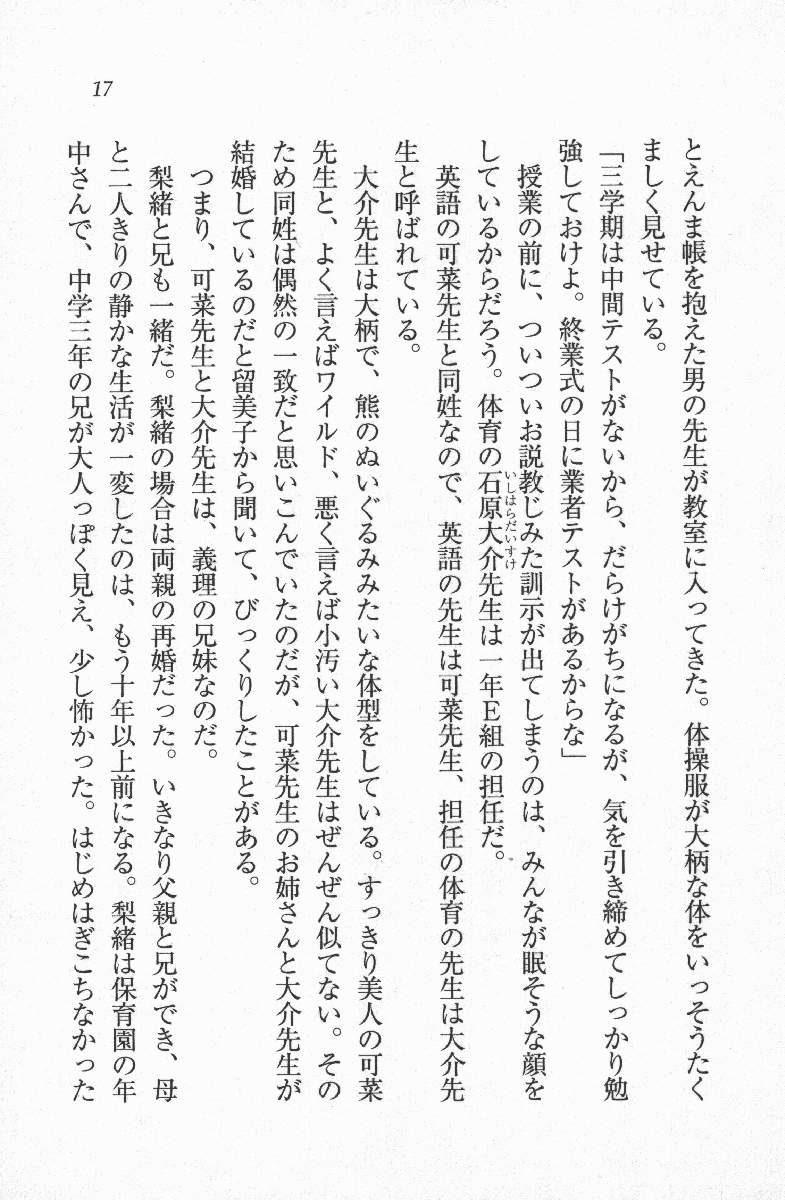 17
とえんま帳を抱えた男の先生が教室に入ってきた。体操服が大柄な体をいっそうたく
ましく見せている。
「三学期は中間テストがないから、だらけがちになるが、気を引き締めてしっかり勉
強しておけよ。終業式の日に業者テストがあるからな」
授業の前に、ついついお説教じみた訓示が出てしまうのは、みんなが眠そうな顔を
しているからだろう。体育の石原大介先生は一年E組の担任だ。
いしはらだいすけ
英語の可菜先生と同姓なので、英語の先生は可菜先生、担任の体育の先生は大介先
生と呼ばれている。
大介先生は大柄で、熊のぬいぐるみみたいな体型をしている。すっきり美人の可菜
先生と、よく言えばワイルド、悪く言えば小汚い大介先生はぜんぜん似てない。その
ため同姓は偶然の一致だと思いこんでいたのだが、可菜先生のお姉さんと大介先生が
結婚しているのだと留美子から聞いて、びっくりしたことがある。
つまり、可菜先生と大介先生は、義理の兄妹なのだ。
梨緒と兄も一緒だ。梨緒の場合は両親の再婚だった。いきなり父親と兄ができ、母
と二人きりの静かな生活が一変したのは、もう十年以上前になる。梨緒は保育園の年
中さんで、中学三年の兄が大人っぽく見え、少し怖かった。はじめはぎこちなかった